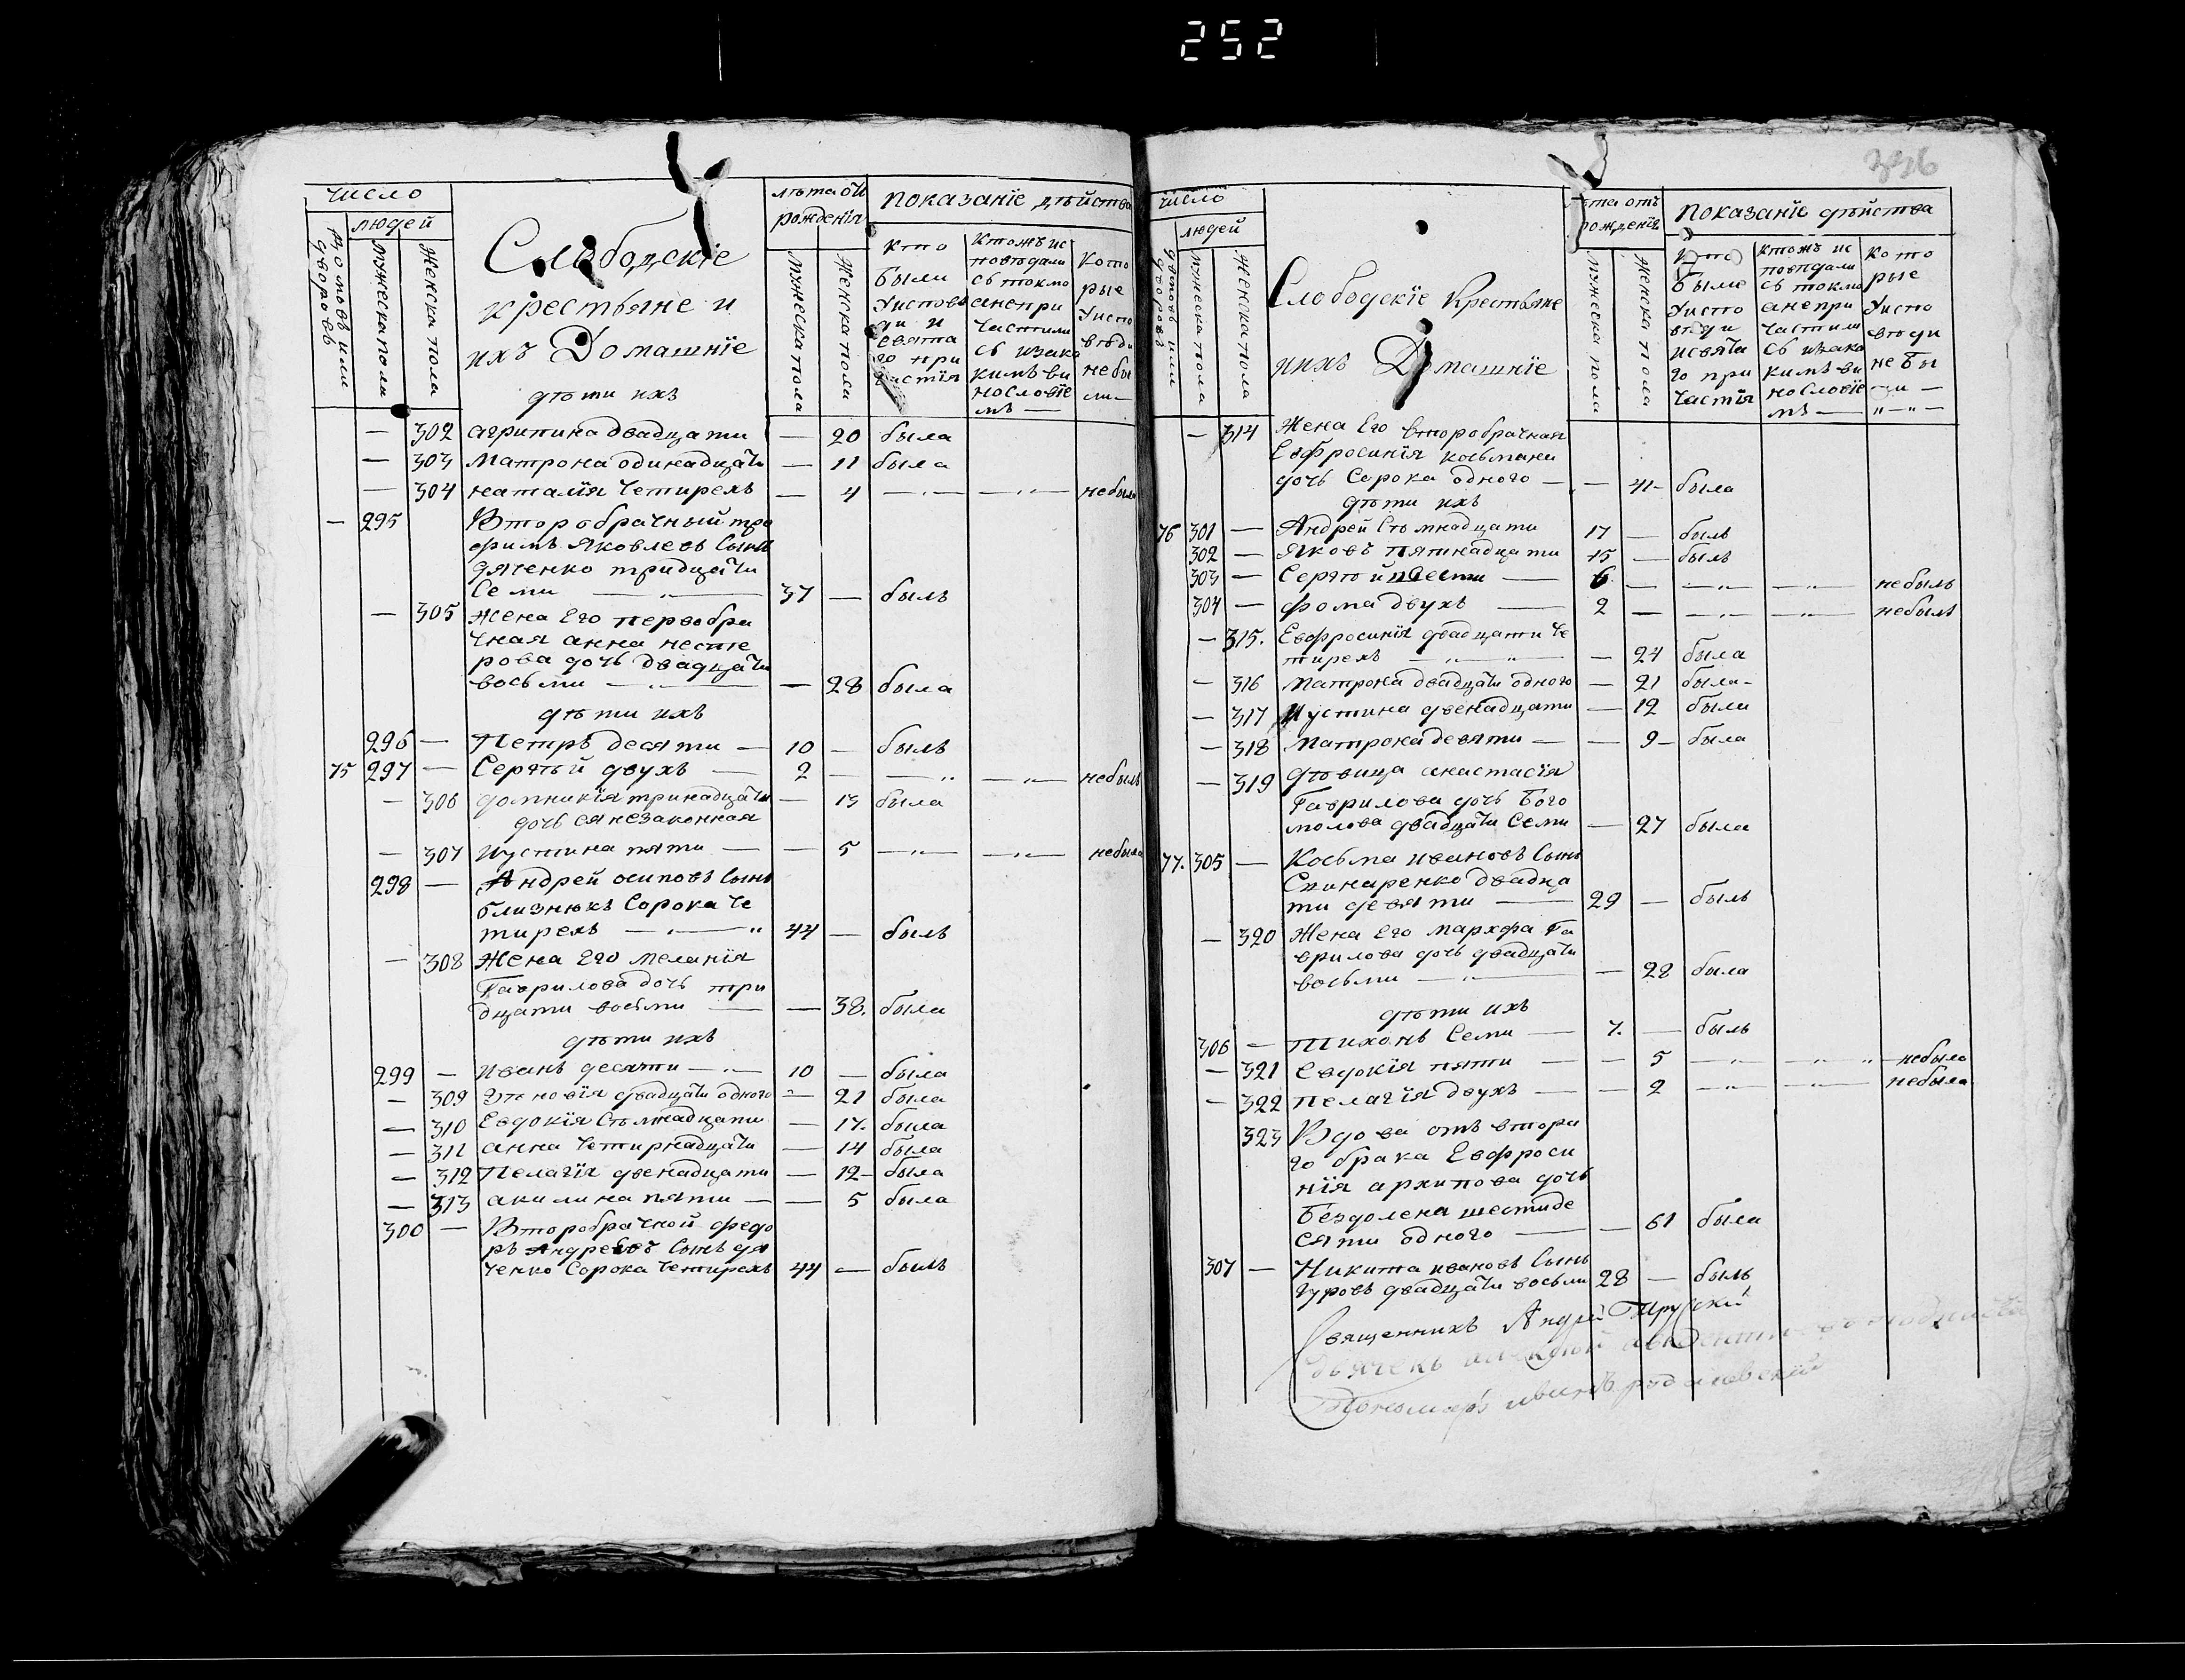 252
число
людей
домовъ или дворовъ
мужеска пола
женска пола
Слободскіе
крестьяне и
ихъ Домашніе
лѣта от
рожденія
мужеска пола
женска пола
показаніе дѣйства
кто
были
уиспов
ди и
свята
го при
частія
ктожъ ис
повѣдали
сь токмо
анепри
частили
сь изака
кимъ ви
нословіе
мъ —
кото
рые
уиспо
вѣди
небы
ли —
дѣти ихъ
— 302 агрипина двадцати — 20 была
— 303 Матрона одинадцати — 11 была
— 304 наталія Четирехъ — 4 — — небыла
— 295 Второбрачный тро
фимъ яковлевъ Сынъ
дяченко тридцати
Семи — 37 — былъ
— 305 жена Его первобра
чная анна несте
рова дочь двадцати
восьми — — 28 была
дѣти ихъ
296 — Петръ десяти — 10 — былъ
75 297 — Сергѣй двухъ — 2 — — — небылъ
— 306 домникія тринадцати — 13 была
дочь ея незаконная
— 307 иустина пяти — — 5 — — небыла
298 — Андрей осиповъ Сынъ
близнюкъ Сорока Че
тирехъ — 44 — былъ
— 308 Жена Его Меланія
Гаврилова дочь три
дцати восьми — — 38. была
дѣти ихъ
299 — иванъ десяти — 10 — была
— 309 двадцати одного — 21 была
— 310 Евдокія Сѣмнадцати — 17. была
— 311 анна Четирнадцати — 14 была
— 312 Пелагія двенадцати — 12 — была
— 313 акилина пяти — — 5 была
300 — Второбрачной федо
ръ Андреевъ Сынъ дя
ченко Сорока Четирехъ 44 — былъ
336
число
людей
домовъ или дворовъ
мужеска пола
женска пола
Слободскіе Крестьяне
иихъ Домашніе
лѣта отъ
рожденія
мужеска пола
женска пола
показаніе дѣйства
кто
были
уиспо
вѣди
исвята
го при
частія
ктожъ ис
повѣдали
сь токмо
анепри
частили
сь изака
кимъ ви
нословіе
мъ —
кото
рые
уиспо
вѣди
не бы
ли —
— 314 Жена Его второбрачная
Евфросинія косьмина
дочь Сорока одного — — 41 — была
дѣти ихъ
76 301 — Андрей Сѣмнадцати 17 — былъ
302 — яковъ пятнадцати 15 — былъ
303 — Сергѣй шести — 6 — — — небылъ
304 — фома двухъ — 2 — — — небылъ
— 315. Евфросинія двадцати Че
тирехъ — — 24 была
— 316 Матрона двадцати одного — 21 была —
— 317 Иустина двенадцати — 12 была
— 318 Матрона девяти — — 9 — была
— 319 дѣвица анастасія
Гаврилова дочь Бого
молова двадцати Семи — 27 была
77. 305 — Косьма ивановъ Сынъ
двадца
ти девяти — 29 — былъ
— 320 Жена Его Мархфа Га
врилова дочь двадцати
восьми — — 28 была
дѣти ихъ
306 — Тихонъ Семи — 7. — былъ
— 321 Евдокія пяти — — 5 — — небыла
— 322 пелагія двухъ — — 2 — — небыла
323 Вдова отъ втора
го брака Евфроси
нія архипова дочь
шестиде
сяти одного — — 61 была
307 — Никита ивановъ Сынъ
гуровъ двадцати восьми 28 — былъ
Священникъ Андрей
Пономаръ иванъ